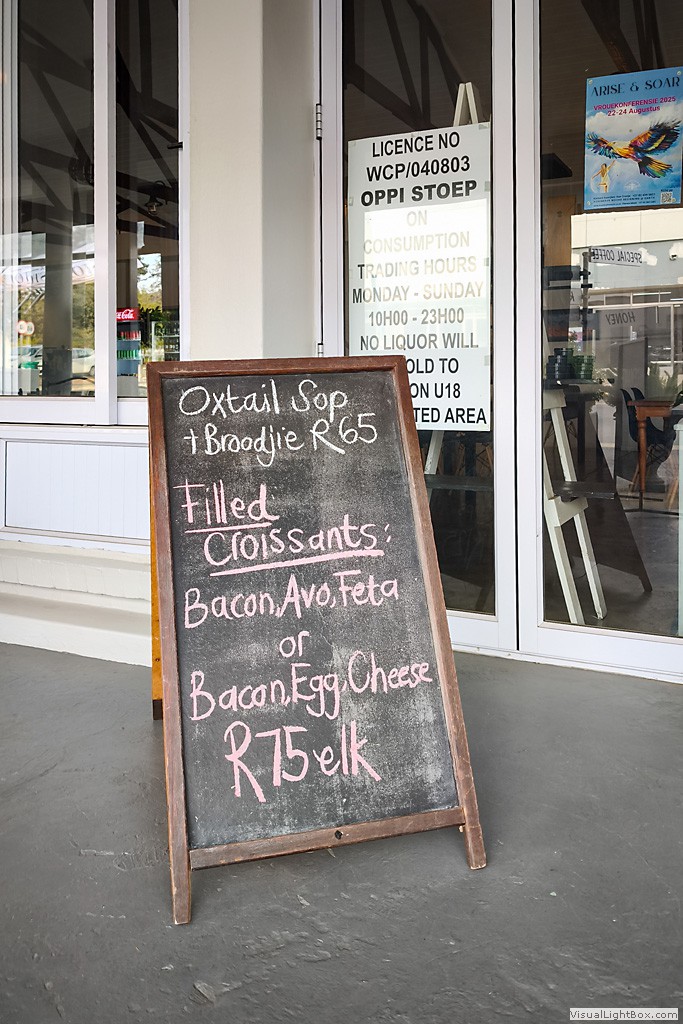 Oxtail Sop
+ Broodjie R65
Filled
Croissants:
Bacon, Avo, Feta
or
Bacon, Egg, Cheese
R75 elk
LICENCE NO
WCP/040803
OPPI STOEP
ON
CONSUMPTION
TRADING HOURS
MONDAY - SUNDAY
10H00 - 23H00
NO LIQUOR WILL
OLD TO
ON U18
TED AREA
ARISE & SOAR
VROUEKONFERENSIE 2025
22-24 Augustus
SPECIAL COFFEE
HONEY
VisualLightBox.com